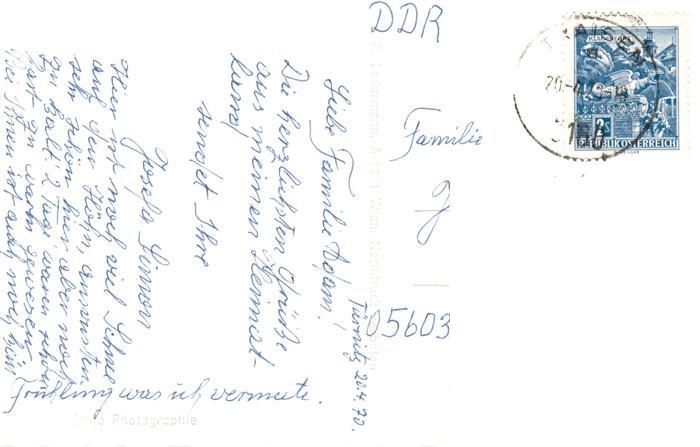 DDR
Familie
J
05603
Türnitz 20.4.70.
Liebe Familie Adam!
Die herzlichsten Grüße
aus meinem Heimat-
land
sendet Ihre
Josefa Simon
Hier ist noch viel Schnee
auf den Höhn, ansonsten
sehr schön hier aber noch
zu kalt. 2 Tage waren schon
fast zu warm gewesen
Bei Ihnen ist auch noch kein
Frühling was ich vermute.
Echte Photographie
TRAISEN
20.-4.
3160
KLAGENFURT
2
REPUBLIK ÖSTERREICH